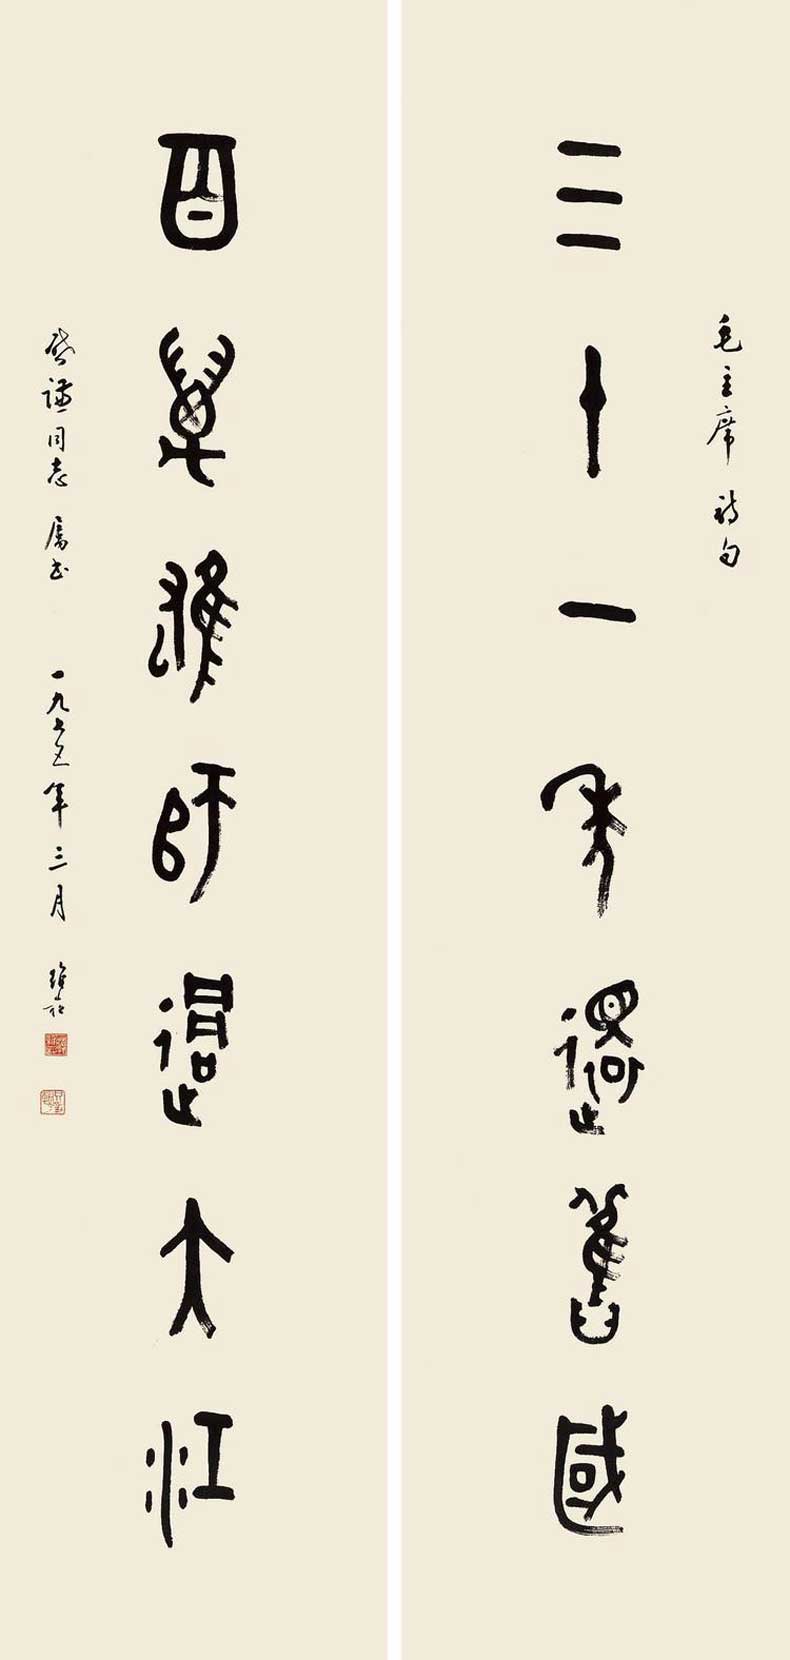 毛主席詩句
三十一年還舊國
百萬雄師過大江
謙同志屬書 一九七五年三月